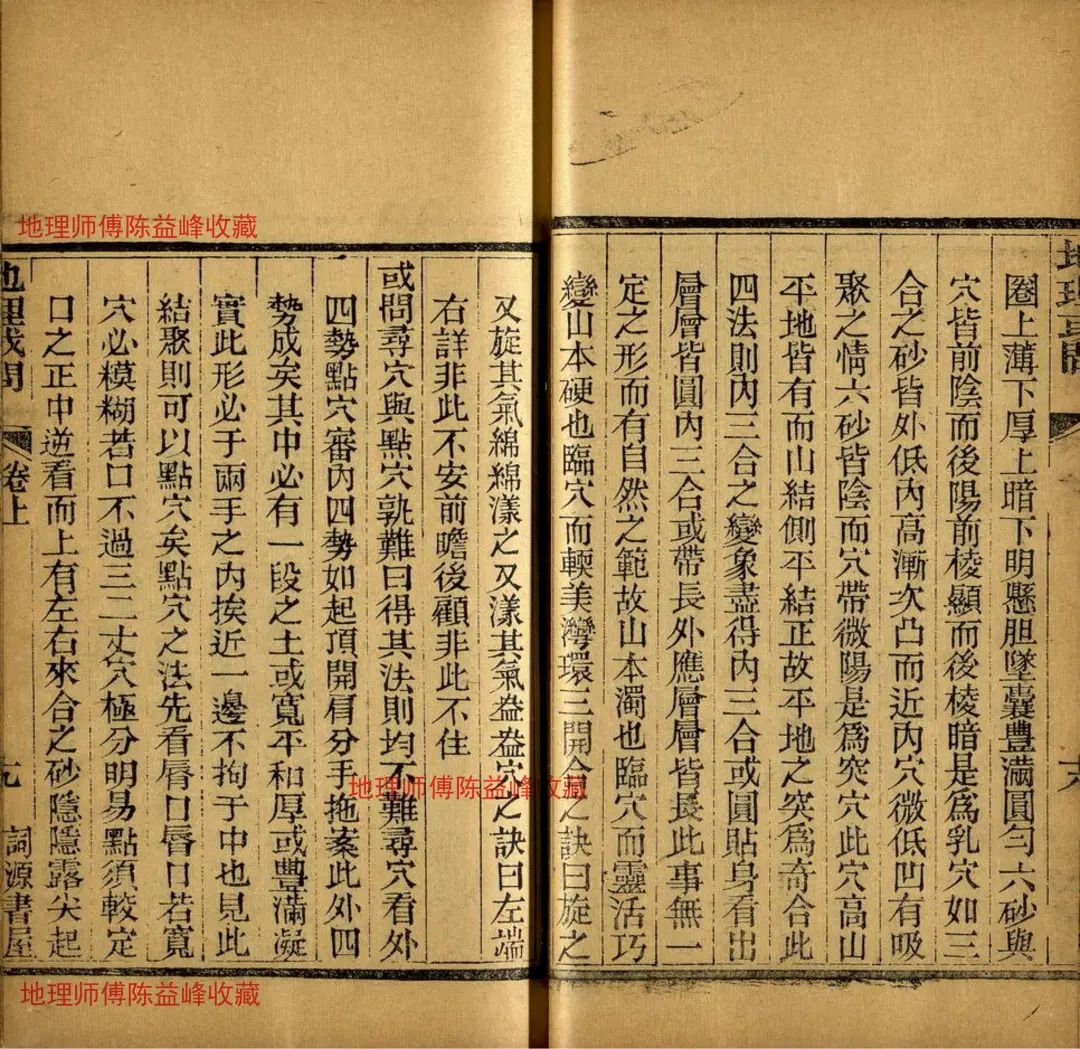 地理或問
圈上薄下厚上暗下明懸胆墜囊豐滿圓勻六砂與
穴皆前陰而後陽前棱顯而後棱暗是爲乳穴如三
合之砂皆外低內高漸次凸而近內穴微低凹有吸
聚之情六砂皆陰而穴帶微陽是爲突穴此穴高山
平地皆有而山結側平結正故平地之突爲奇合此
四法則內三合之變象盡得內三合或圓貼身看出
層層皆圓內三合或帶長外應層層皆長此事無一
定之形而有自然之範故山本濁也臨穴而靈活巧
變山本硬也臨穴而輭美灣環三開合之訣曰旋之
又旋其氣綿綿漾之又漾其氣盎盎穴之訣曰左端
右詳非此不安前瞻後顧非此不住
或問尋穴與點穴孰難曰得其法則均不難尋穴看外
四勢點穴審內四勢如起頂開肩分手拖案此外四
勢成矣其中必有一段之土或寬平和厚或豐滿凝
實此形必于兩手之內挨近一邊不拘于中也見此
結聚則可以點穴矣點穴之法先看唇口唇口若寬
穴必模糊若口不過三二丈穴極分明易點須較定
口之正中逆看而上有左右來合之砂隱隱露尖起
地理或問
卷上
九
詞源書屋
地理师傅陈益峰收藏
地理师傅陈益峰收藏
地理师傅陈益峰收藏